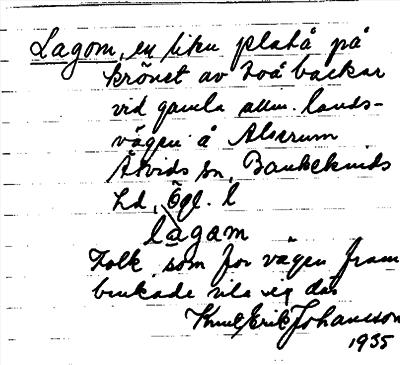 Lagom, en liten platå på
krönet av två backar
vid gamla allm. lands-
vägen å Alserum
Åtvids sn, Bankekinds
hd, Ögl. l
lagam
Folk som for vägen fram
brukade vila sig där
Knut Erik Johansson
1935